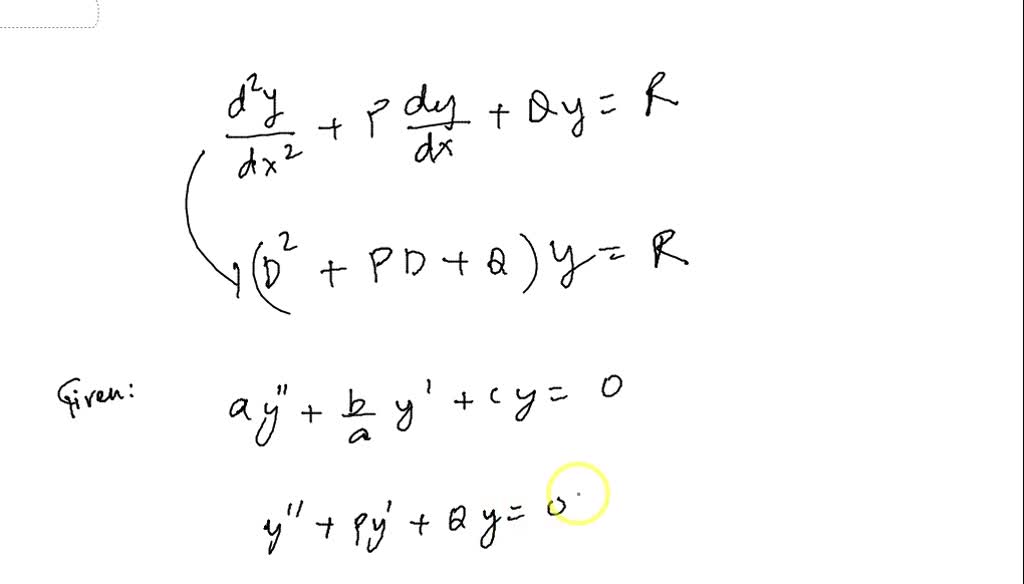 d²y/dx² + P dy/dx + Qy = R
(D² + PD + Q)y = R
Given: ay'' + b/a y' + cy = 0
y'' + Py' + Qy = 0